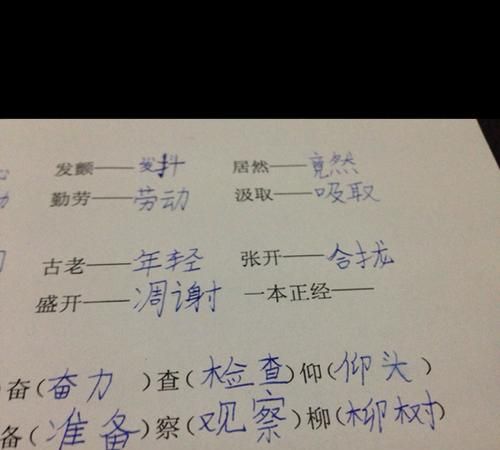 发颤——发抖 居然——竟然
勤劳——劳动 汲取——吸取
古老——年轻 张开——合拢
盛开——凋谢 一本正经——
奋(奋力)查(检查)仰(仰头)
备(准备)察(观察)柳(柳树)